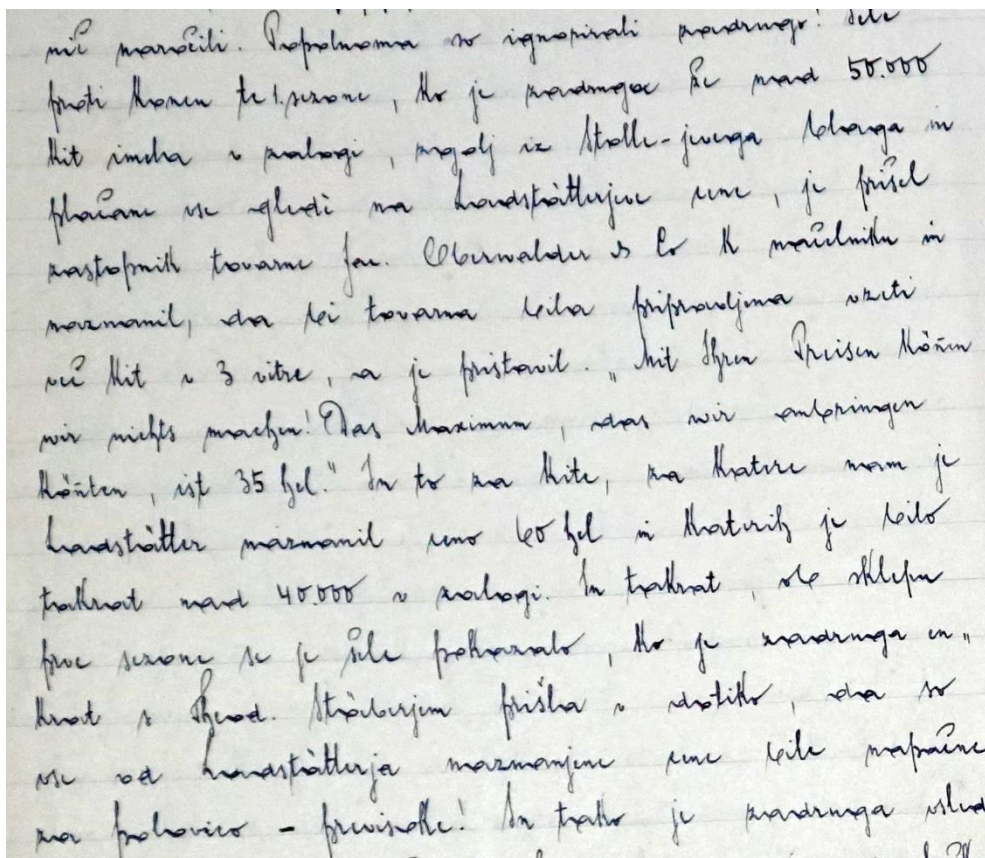 nič naročili. Popolnoma so ignorirali zadrugo! Šele
proti koncu te 1. sezone, ko je zadruga že nad 50.000
kit imela v zalogi, zgolj iz Stolle-jevega blaga in
plačane vse glede na Landstätterjeve cene, je prišel
zastopnik tovarne Jac. Oberwalder & Co k načelniku in
naznanil, da bi tovarna bila pripravljena vzeti
več kit v 3 vitre, a je pristavil. „Mit Ihren Preisen könen
wir nichts machen! Das Maximum, das wir anbringen
könten, ist 35 hel." In to za kite, za katere nam je
Landstätter naznanil ceno 60 hel in katerih je bilo
takrat nad 40.000 v zalogi. In takrat, ob sklepu
prve sezone se je šele pokazalo, ko je zadruga en„
krat s Theod. Stäberjem prišla v dotiko, da so
vse od Landstätterja naznanjene cene bile napačne
za polovico – previsoke! In tako je zadruga vsled